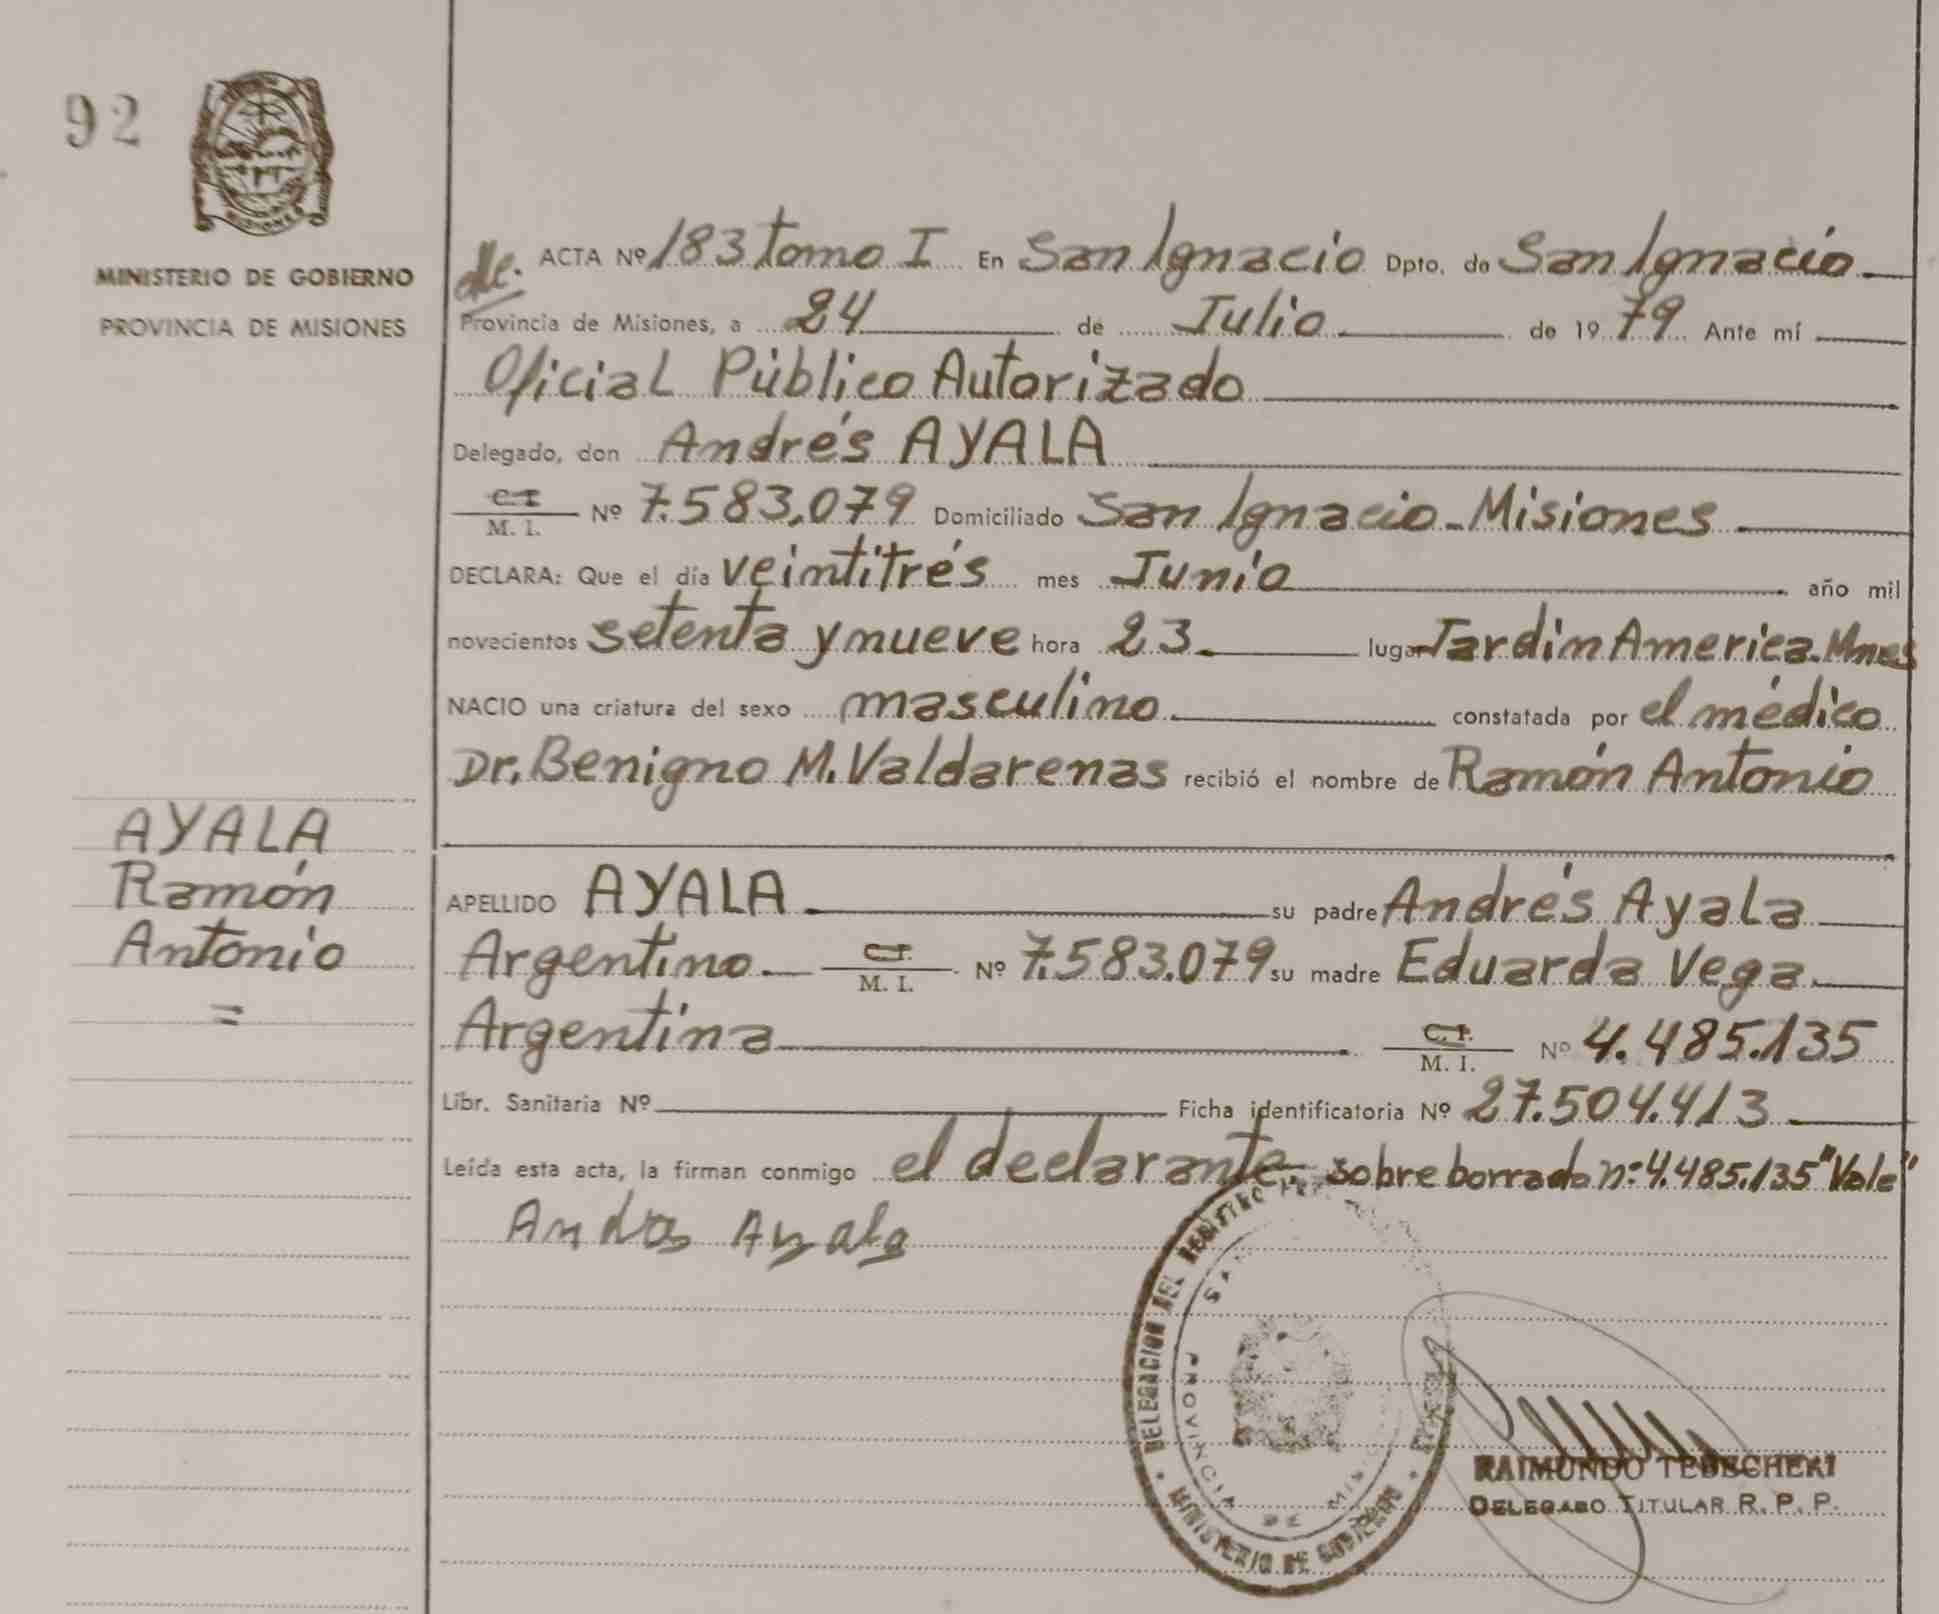 92
MISIONES
MINISTERIO DE GOBIERNO
PROVINCIA DE MISIONES
AYALA
Ramón
Antonio
=
ACTA Nº 183 tomo I En San Ignacio Dpto. de San Ignacio
Provincia de Misiones, a 24 de Julio de 1979 Ante mí
Oficial Público Autorizado
Delegado, don Andrés AYALA
C.I.
M. I. Nº 7.583.079 Domiciliado San Ignacio - Misiones
DECLARA: Que el día veintitrés mes Junio año mil
novecientos setenta y nueve hora 23 lugar Jardín America - Mnes
NACIO una criatura del sexo masculino constatada por el médico
Dr. Benigno M. Valdarenas recibió el nombre de Ramón Antonio
APELLIDO AYALA su padre Andrés Ayala
Argentino C.I. M. I. Nº 7.583.079 su madre Eduarda Vega
Argentina C.I. M. I. Nº 4.485.135
Libr. Sanitaria Nº Ficha identificatoria Nº 27.504.413
Leída esta acta, la firman conmigo el declarante - sobre borrado nº: 4.485.135 "Vale"
Andrés Ayala
DELEGACION DEL REGISTRO
PROVINCIA DE MIS
MINISTERIO DE GOBIERNO
RAIMUNDO
DELEGADO TITULAR R. P. P.